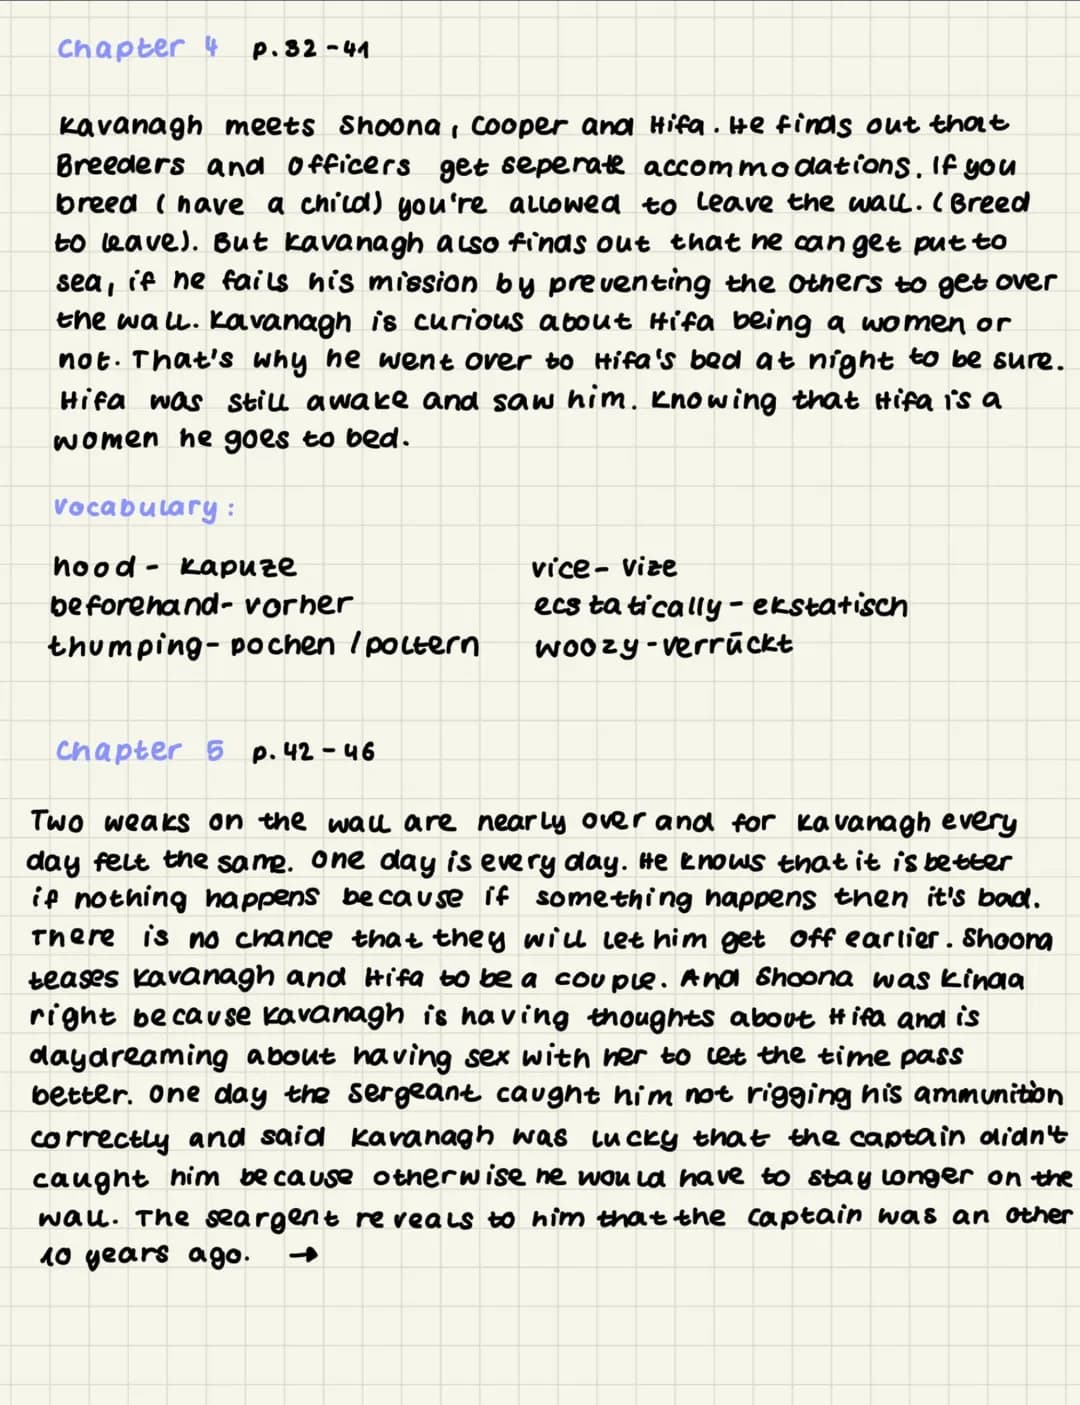 Chapter 4 p.32-41
Kavanagh meets Shoona, Cooper and Hifa. He finds out that
Breeders and Officers get seperate accommodations. If you
breed (have a child) you're allowed to leave the wall. (Breed
to leave). But Kavanagh also finds out that he can get put to
sea, if he fails his mission by preventing the Others to get over
the wall. Kavanagh is curious about Hifa being a women or
not. That's why he went over to Hifa's bed at night to be sure.
Hifa was still awake and saw him. Knowing that Hifa is a
women he goes to bed.
Vocabulary:
hood - Kapuze
vice- Vize
beforehand- vorher
ecstatically - ekstatisch
thumping- pochen / poltern
woozy - verrückt
Chapter 5 p.42-46
Two weaks on the wall are nearly over and for Kavanagh every
day felt the same. One day is every day. He knows that it is better
if nothing happens because if something happens then it's bad.
There is no chance that they will let him get off earlier. Shoona
teases Kavanagh and Hifa to be a couple. And Shoona was kinda
right because Kavanagh is having thoughts about Hifa and is
daydreaming about having sex with her to let the time pass
better. One day the Sergeant caught him not rigging his ammunition
correctly and said Kavanagh was lucky that the captain didn't
caught him because otherwise he would have to stay longer on the
wall. The seargent reveals to him that the Captain was an Other
10 years ago. →